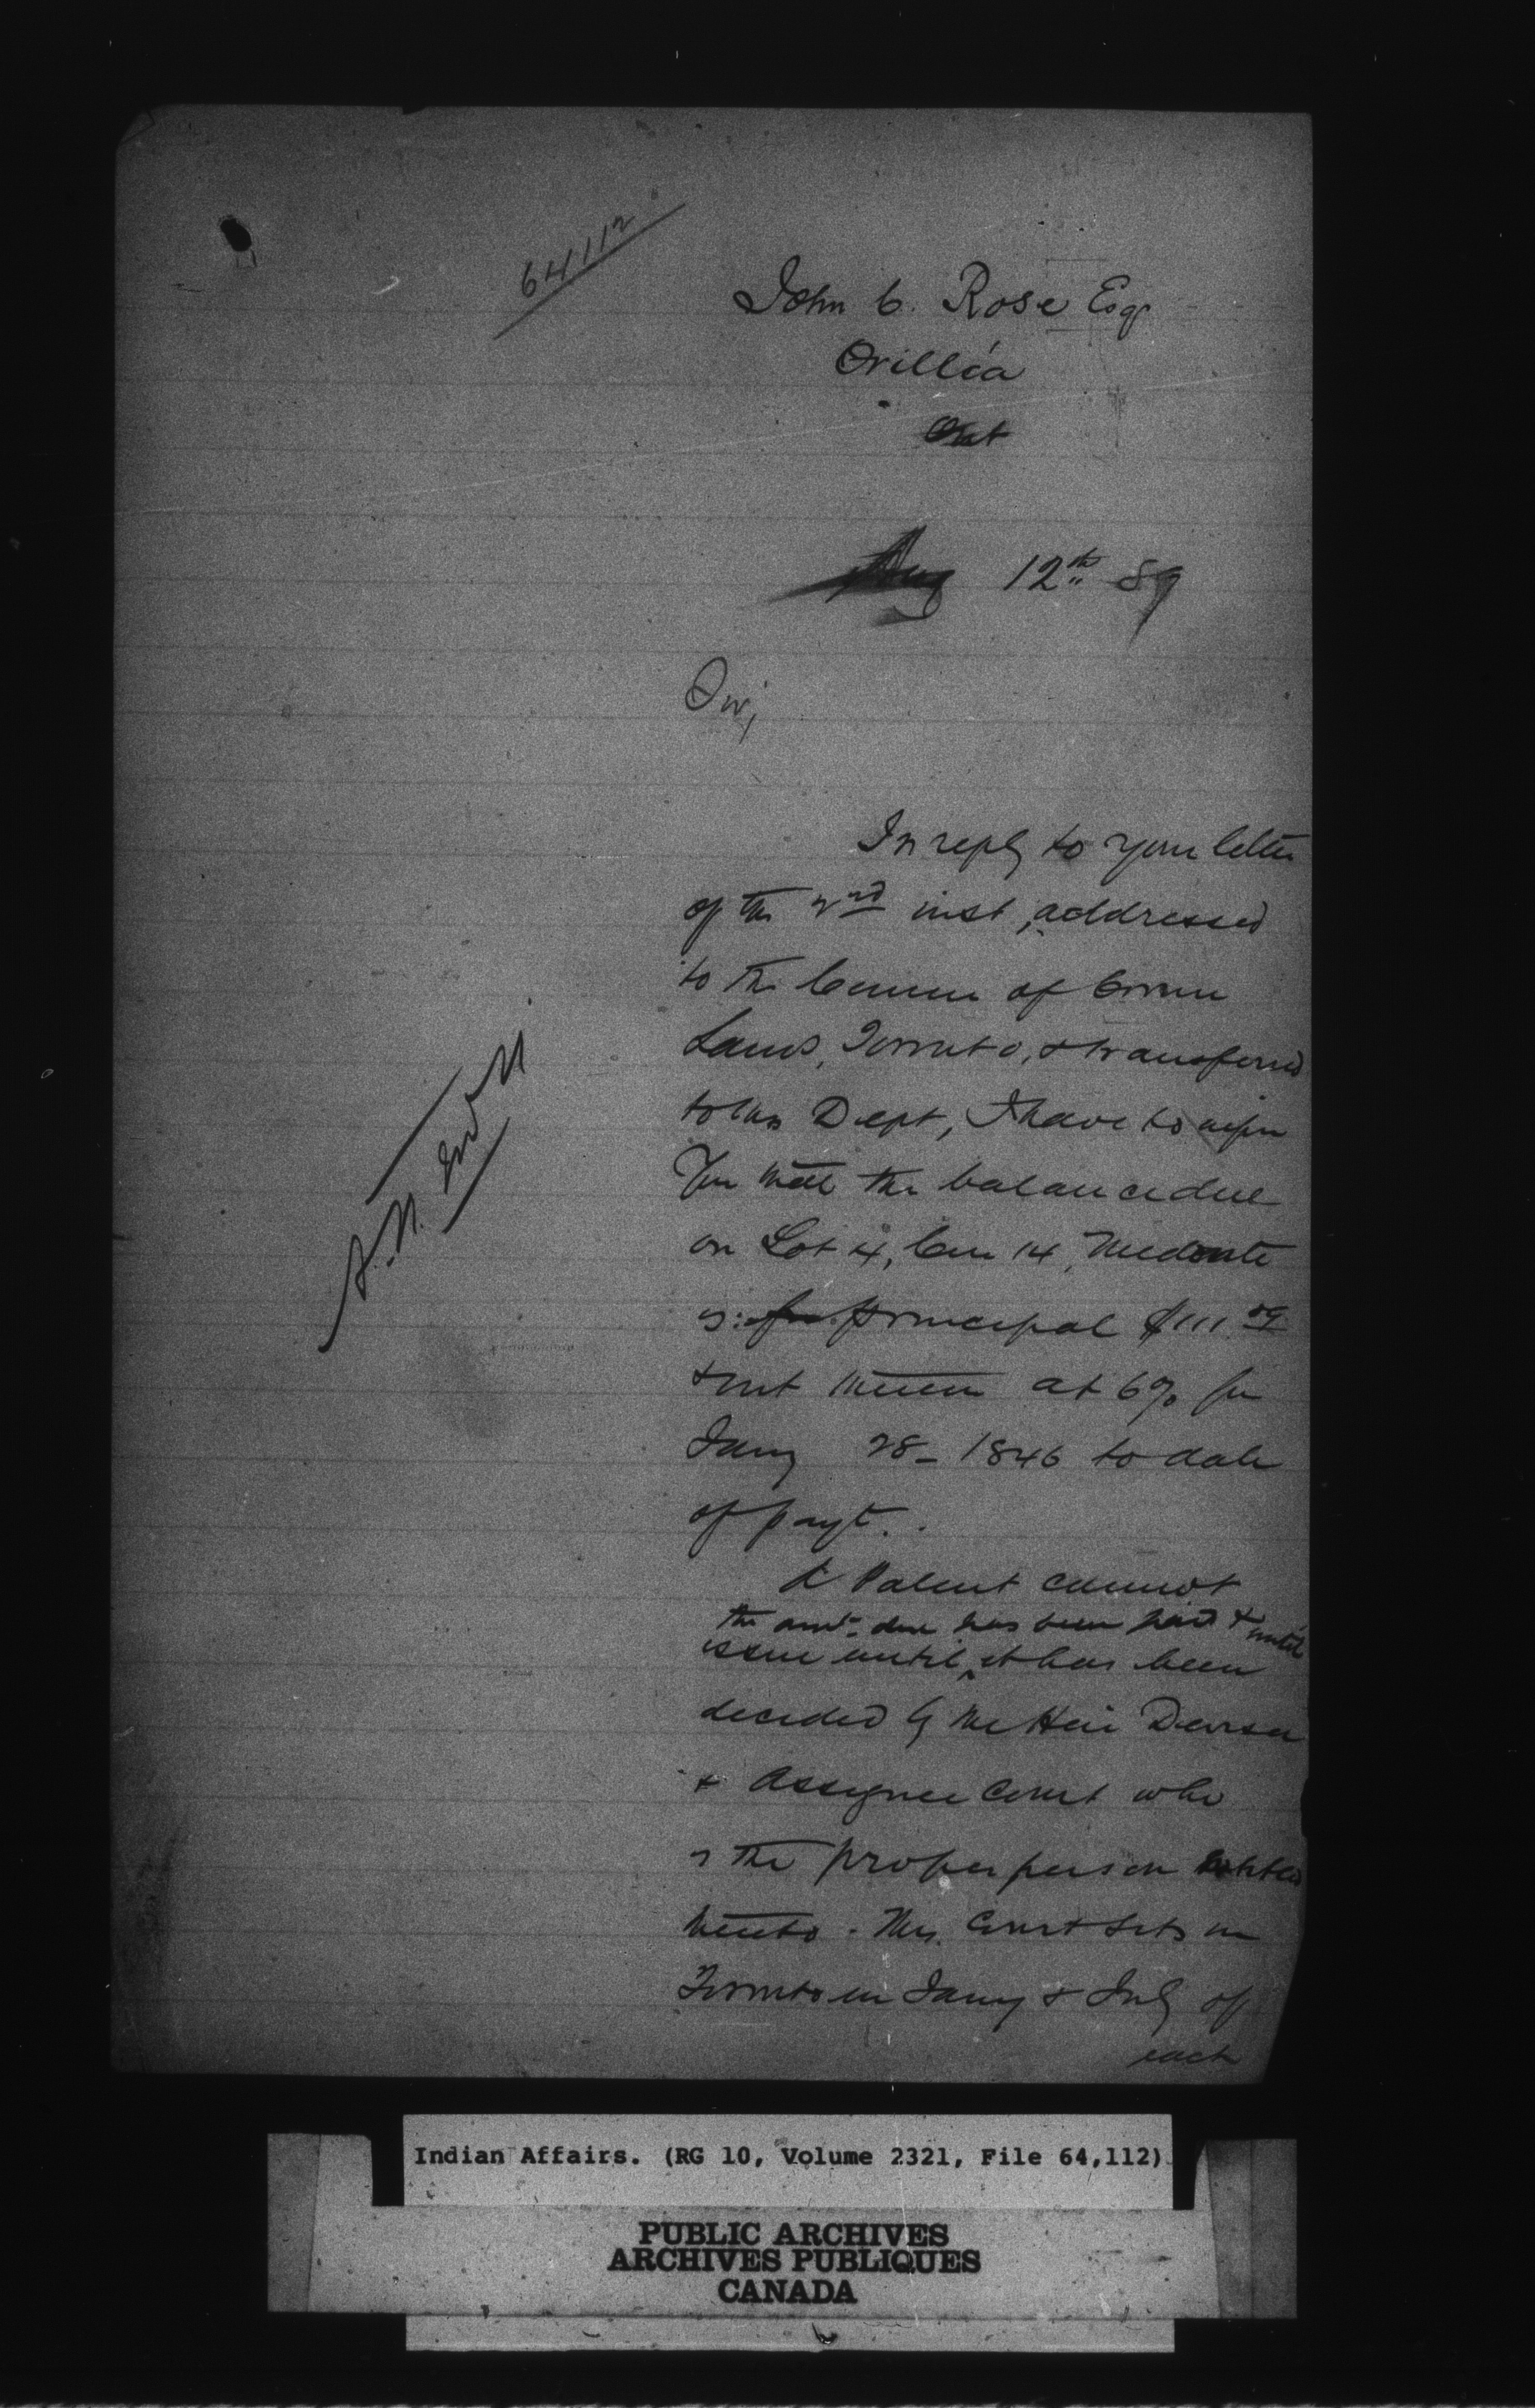 64112
John C. Rose Esqr
Orillia
Ont
Aug 12th 89
Sir,
In reply to your letter
of the 2nd inst, addressed
to the Commr of Crown
Lands, Toronto, & transferred
to this Dept, I have to inform
You that the balance due
on Lot 4, Con 14, Medonte
is: for principal $111.09
& int thereon at 6% fr
Jany 28 - 1846 to date
of payt.
A Patent cannot
the amt due has been paid & until
issue until ^ it has been
decided by the Heir Devisee
& Assignee Court who
is the proper person entitled
thereto. This Court sits in
Toronto in Jany & July of
each
Indian Affairs. (RG 10, Volume 2321, File 64,112)
PUBLIC ARCHIVES
ARCHIVES PUBLIQUES
CANADA